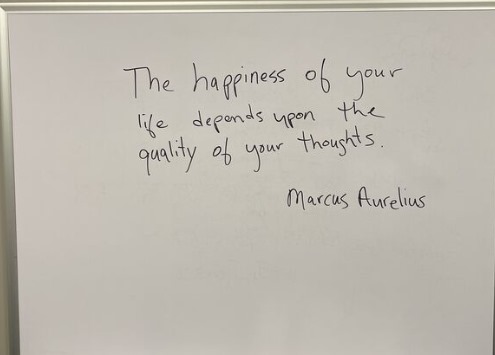 The happiness of your
life depends upon the
quality of your thoughts.
Marcus Aurelius